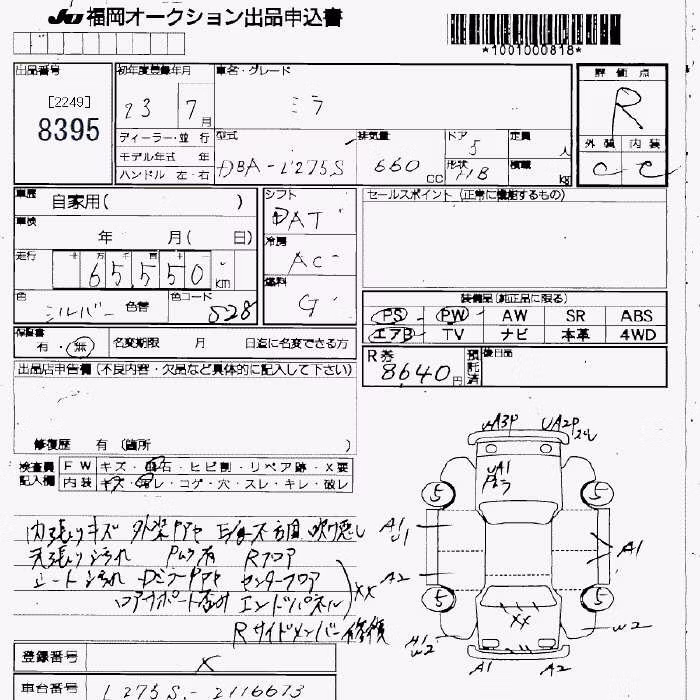 JU 福岡オークション出品申込書
*1001000818*
出品番号
[2249]
8395
初年度登録年月
23 7月
車名・グレード
ミラ
評価点
R
外装 内装
C C
ディーラー・並行
モデル年式 年
ハンドル 左・右
型式
DBA-L275S
排気量
660 CC
ドア
5
形状
HB
定員
人
積載
kg
車歴
自家用( )
車検
年 月( 日)
走行
65,550 km
色
シルバー 色替
色コード
S28
シフト
DAT
冷房
AC
燃料
G
セールスポイント (正常に機能するもの)
装備品(純正品に限る)
PS PW AW SR ABS
エアB TV ナビ 本革 4WD
保証書
有・無
名変期限 月 日迄に名変できる方
R券
8640円
預託済
後日品
出品店申告欄(不良内容・欠品など具体的に記入して下さい)
修復歴 有 (箇所 )
検査員
記入欄
FW キズ・飛石・ヒビ割・リペア跡・X要
内装 キズ・汚レ・コゲ・穴・スレ・キレ・破レ
内張りキズ
天張り汚れ Rフロア
シート汚れ センターフロア
エンドパネル XX
Rサイドメンバー修復
UA3P UA2P
UA1
5 5
A1
U1
A1
A2
5 5
XX
W2
W2
A1 A2
登録番号
X
車台番号
L275S-2116673